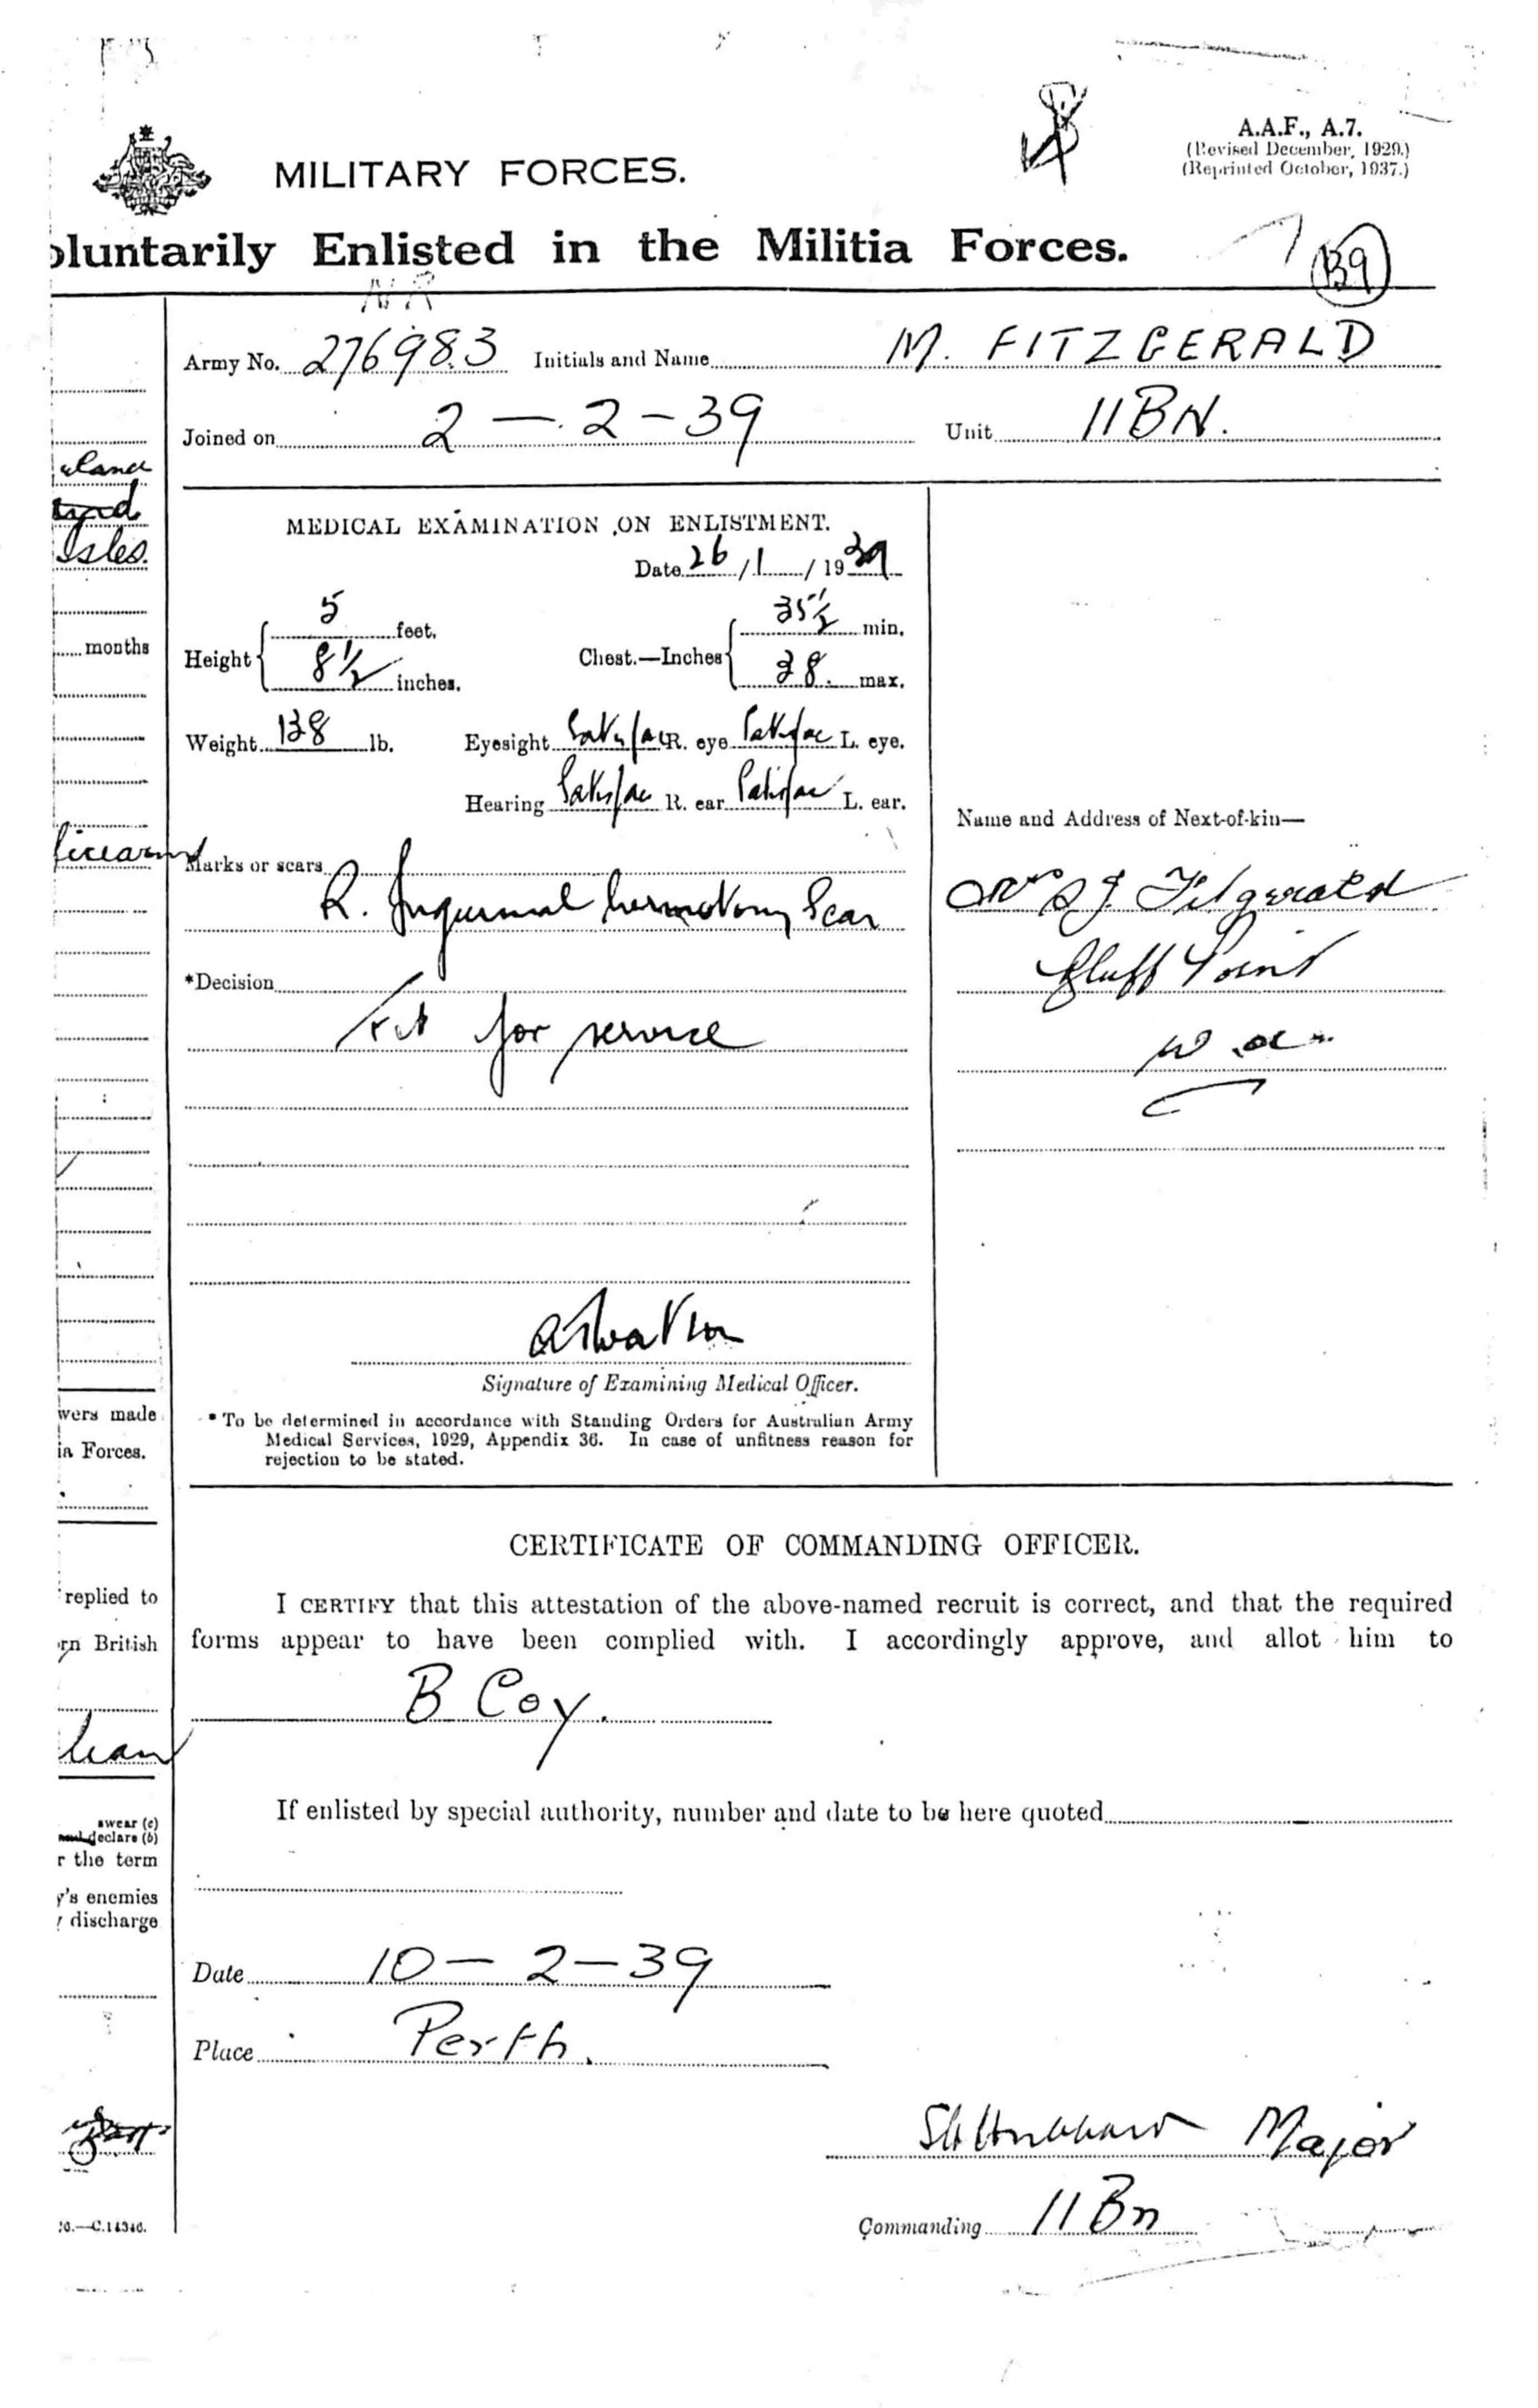 A.A.F., A.7.
(Revised December, 1929.)
(Reprinted October, 1937.)
MILITARY FORCES.
oluntarily Enlisted in the Militia Forces.
B9
Army No. 276983 Initials and Name M. FITZGERALD
Joined on 2 - 2 - 39 Unit 11 BN.
Isles.
months
MEDICAL EXAMINATION ON ENLISTMENT.
Date 26 / 1 / 1939
Height { 5 feet. 8½ inches.
Chest.—Inches { 35½ min. 38 max.
Weight 138 lb. Eyesight Satisfac R. eye Satisfac L. eye.
Hearing Satisfac R. ear Satisfac L. ear.
firearms
Marks or scars
R. Inguinal herniotomy Scar
*Decision
Fit for service
Signature of Examining Medical Officer.
* To be determined in accordance with Standing Orders for Australian Army
Medical Services, 1929, Appendix 36. In case of unfitness reason for
rejection to be stated.
Name and Address of Next-of-kin—
Fitzgerald
Bluff Point
W.A.
wers made
ia Forces.
CERTIFICATE OF COMMANDING OFFICER.
I CERTIFY that this attestation of the above-named recruit is correct, and that the required
forms appear to have been complied with. I accordingly approve, and allot him to
B Coy.
replied to
rn British
If enlisted by special authority, number and date to be here quoted
swear (c)
declare (b)
r the term
y's enemies
discharge
Date 10 - 2 - 39
Place Perth.
Major
Commanding 11 Bn
20.—C.14340.